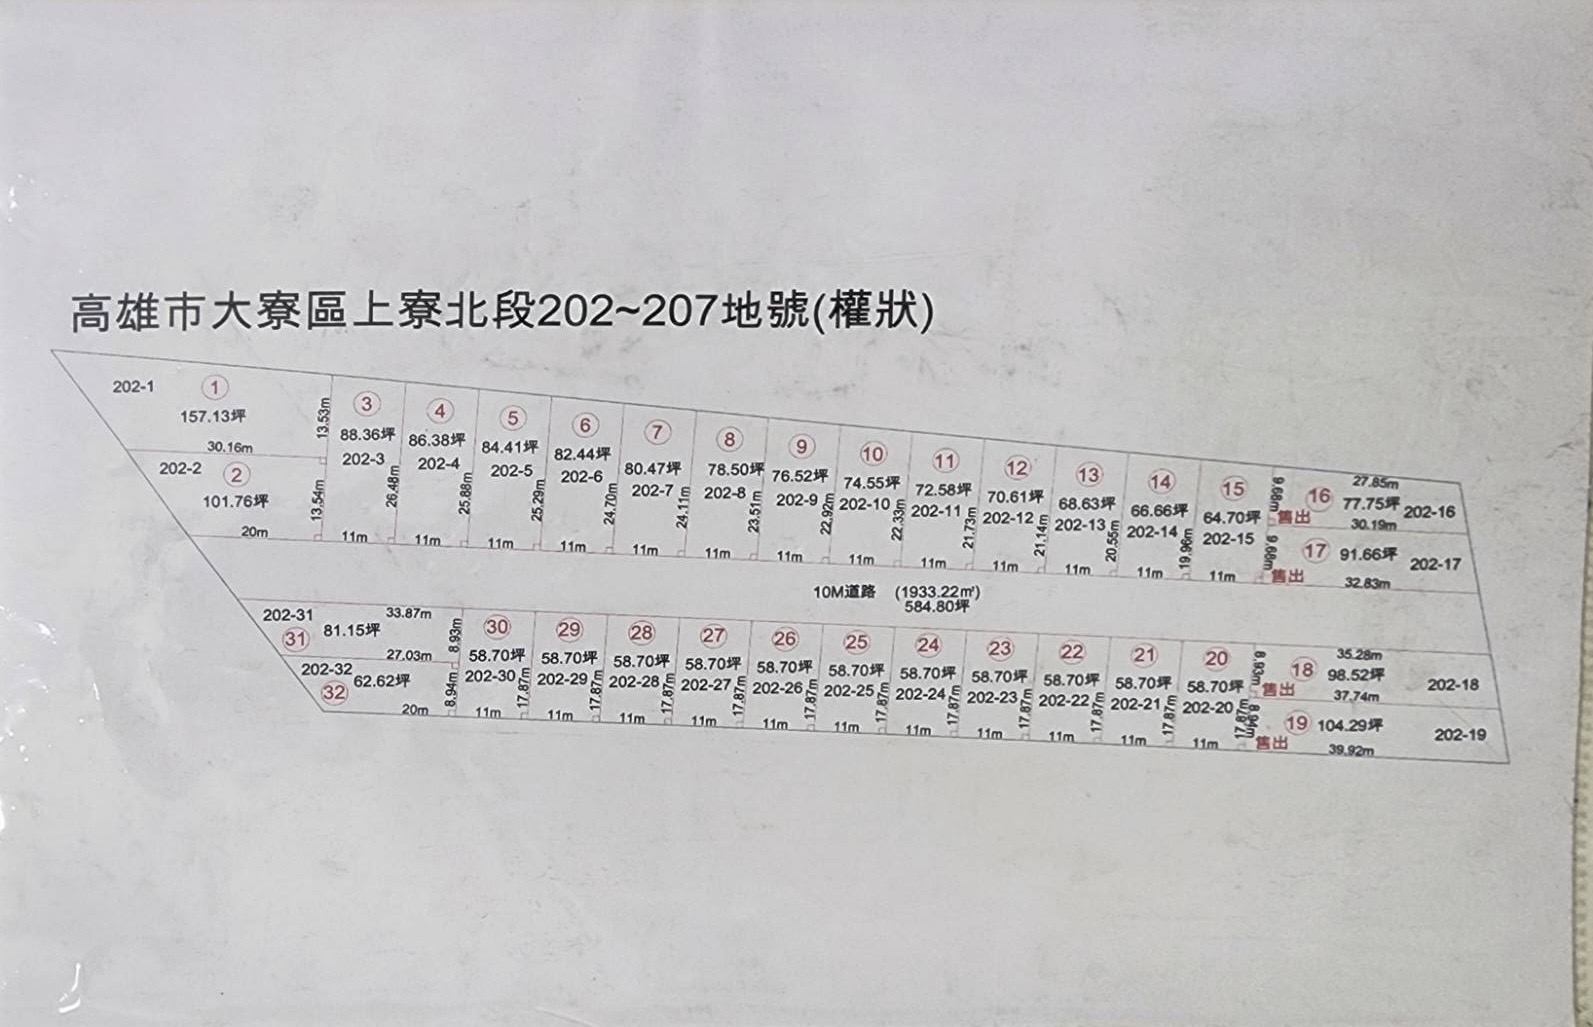 高雄市大寮區上寮北段202~207地號(權狀)
202-1
①
157.13坪
30.16m
13.53m
202-2
②
101.76坪
20m
13.54m
③
88.36坪
202-3
26.48m
11m
④
86.38坪
202-4
25.88m
11m
⑤
84.41坪
202-5
25.29m
11m
⑥
82.44坪
202-6
24.70m
11m
⑦
80.47坪
202-7
24.11m
11m
⑧
78.50坪
202-8
23.51m
11m
⑨
76.52坪
202-9
22.92m
11m
⑩
74.55坪
202-10
22.33m
11m
⑪
72.58坪
202-11
21.73m
11m
⑫
70.61坪
202-12
21.14m
11m
⑬
68.63坪
202-13
20.55m
11m
⑭
66.66坪
202-14
19.96m
11m
⑮
64.70坪
202-15
11m
9.68m
售出
⑯
27.85m
77.75坪
202-16
30.19m
9.68m
售出
⑰
91.66坪
202-17
32.83m
10M道路 (1933.22㎡)
584.80坪
202-31
33.87m
㉛
81.15坪
8.93m
27.03m
202-32
㉜
62.62坪
8.94m
20m
㉚
58.70坪
202-30
17.87m
11m
㉙
58.70坪
202-29
17.87m
11m
㉘
58.70坪
202-28
17.87m
11m
㉗
58.70坪
202-27
17.87m
11m
㉖
58.70坪
202-26
17.87m
11m
㉕
58.70坪
202-25
17.87m
11m
㉔
58.70坪
202-24
17.87m
11m
㉓
58.70坪
202-23
17.87m
11m
㉒
58.70坪
202-22
17.87m
11m
㉑
58.70坪
202-21
17.87m
11m
⑳
58.70坪
202-20
17.87m
11m
8.93m
售出
⑱
35.28m
98.52坪
202-18
37.74m
售出
⑲
104.29坪
202-19
39.92m